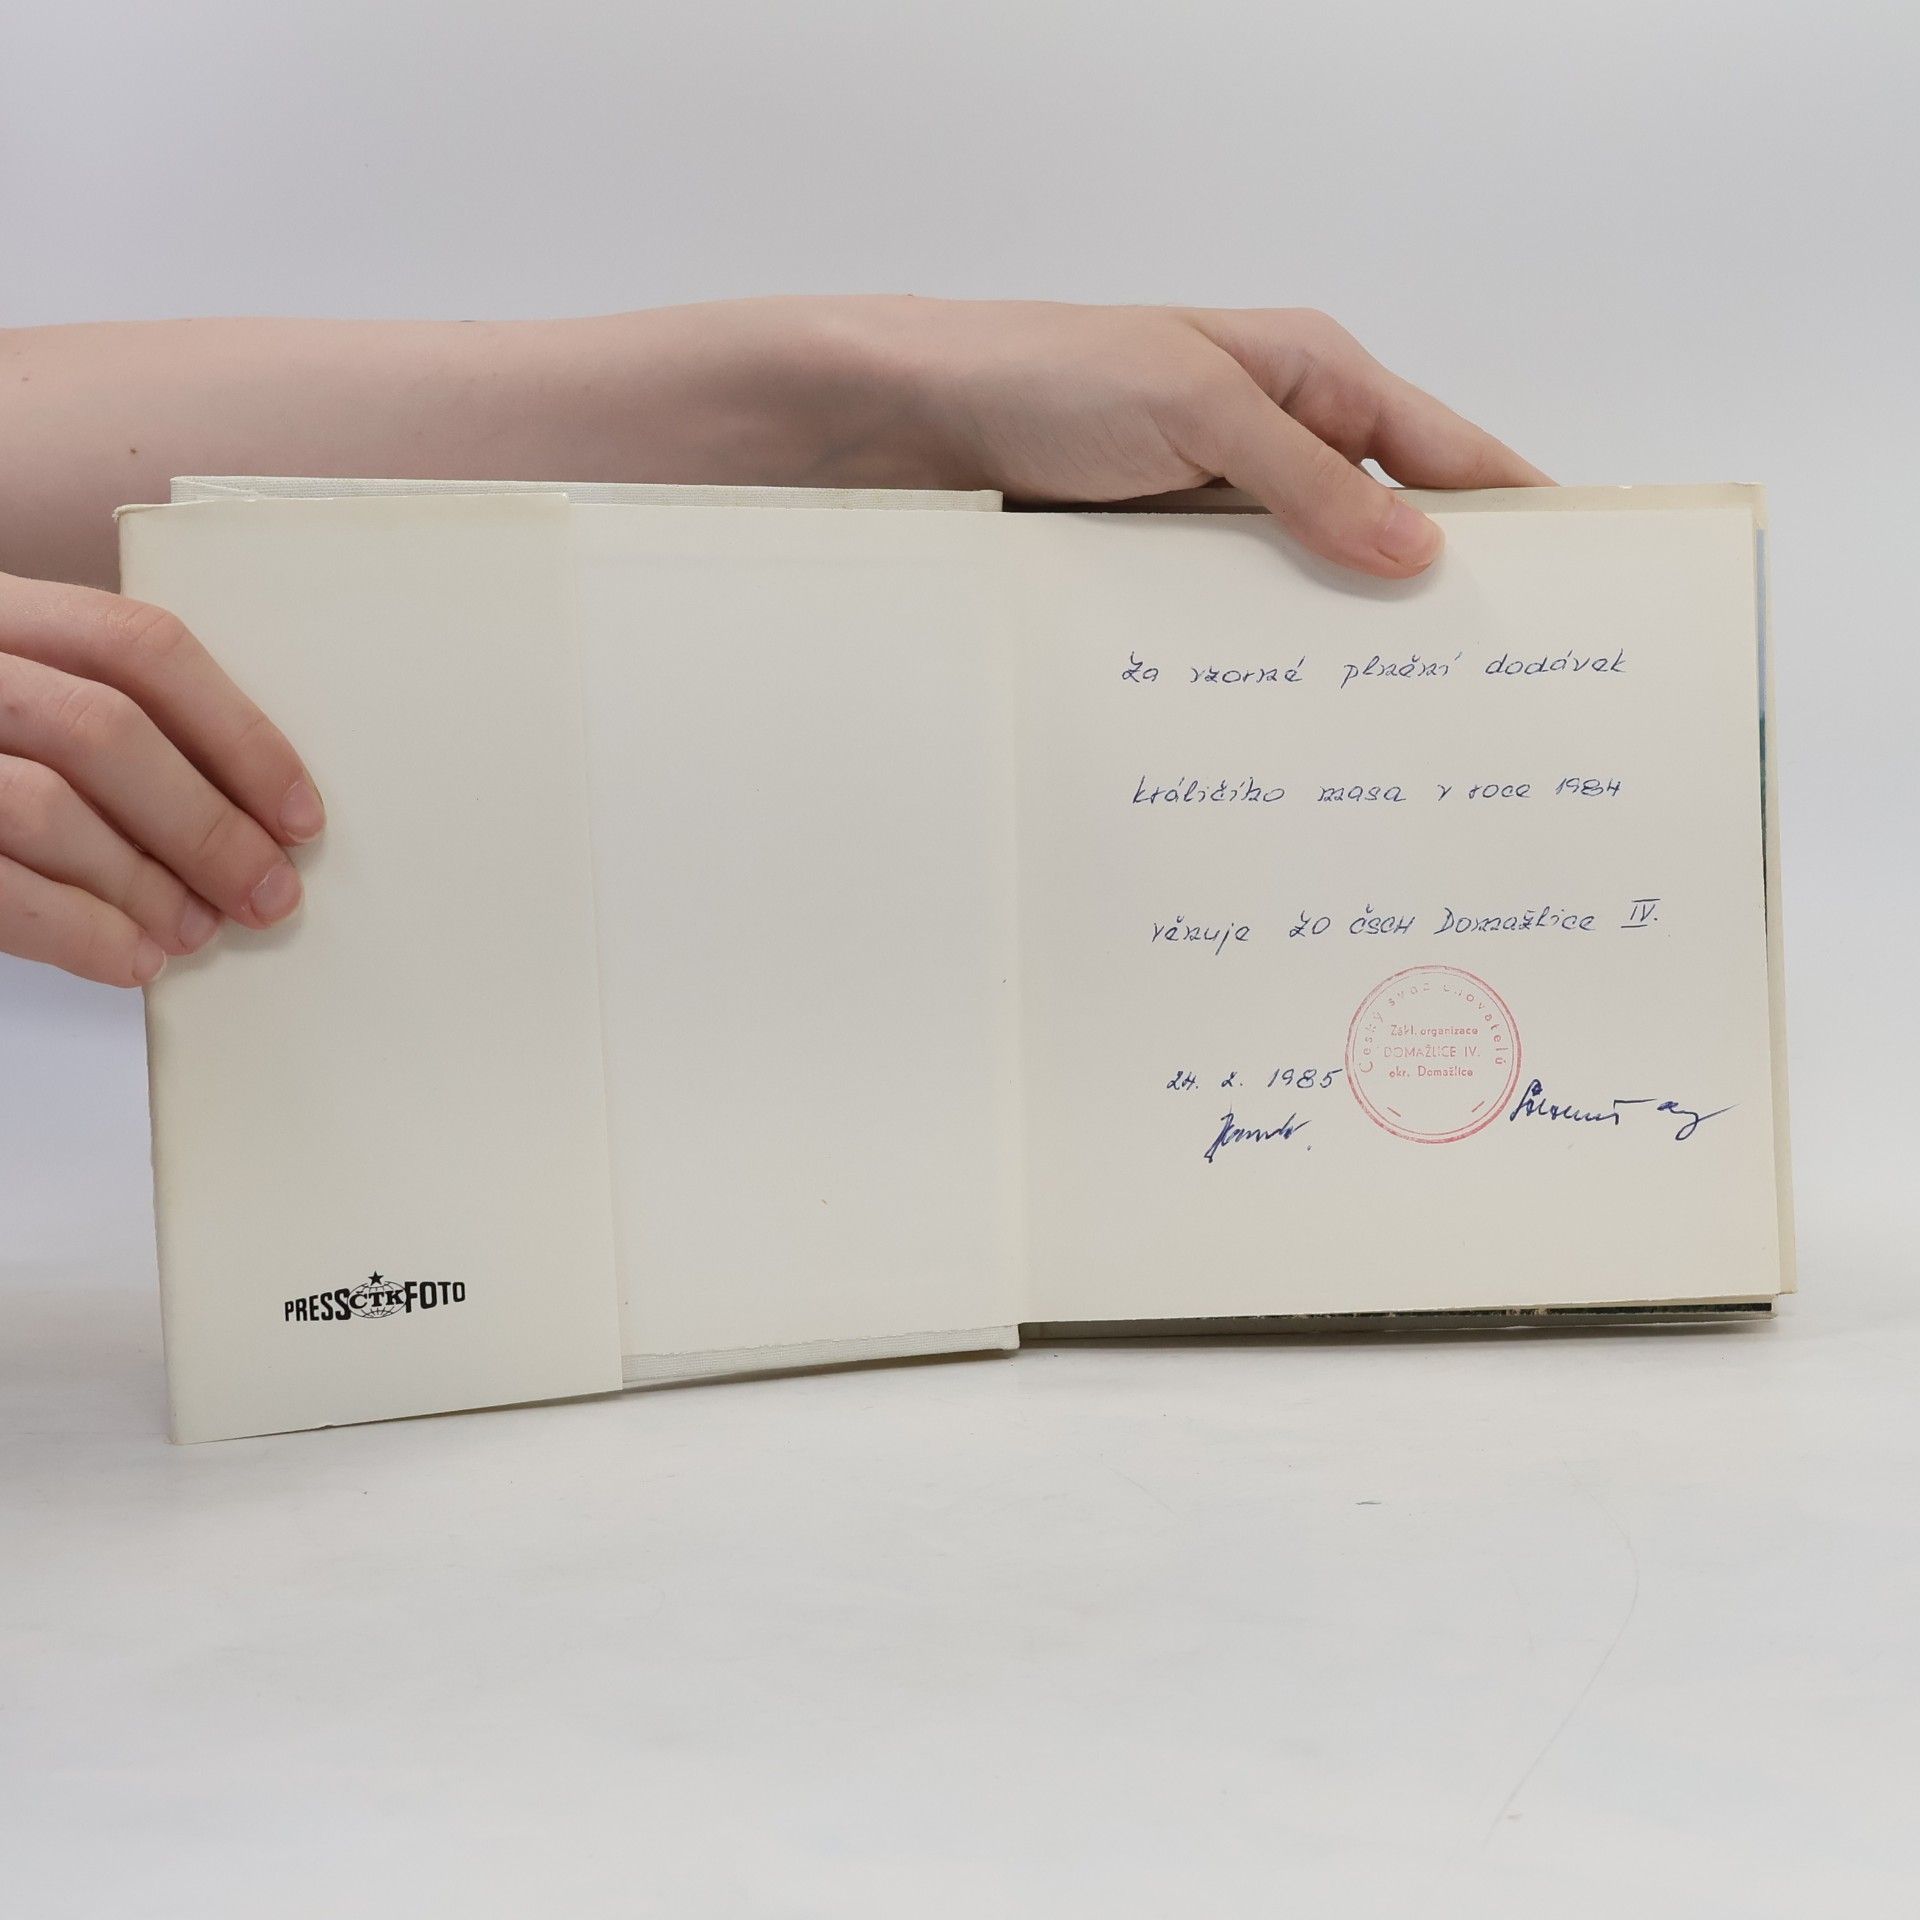 Za vzorné plnění dodávek
králičího masa v roce 1984
věnuje ZO ČSCH Domažlice IV.
Český svaz chovatelů
Zákl. organizace
DOMAŽLICE IV.
okr. Domažlice
24. 2. 1985
PRESS ČTK FOTO